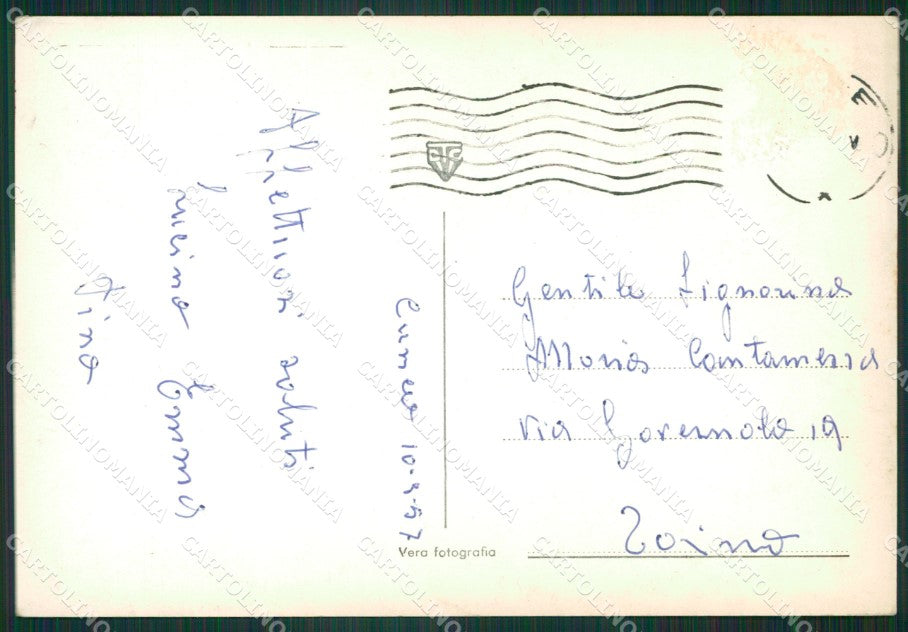 Affettuosi saluti
Lucina Emma
Nino
Cuneo 10-3-57
Gentile Signorina
Maria Contamessa
via Governolo 19
Torino
Vera fotografia
CARTOLINOMANIA